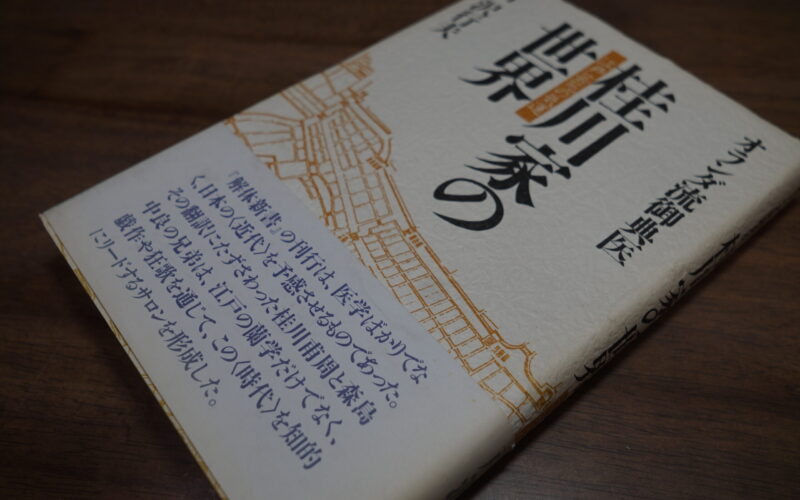 オランダ流御典医
桂川家の
世界
沢行夫
『解体新書』の刊行は、医学ばかりでな
く、日本の〈近代〉を予感させるものであった。
その翻訳にたずさわった桂川甫周と森島
中良の兄弟は、江戸の蘭学だけでなく、
戯作や狂歌を通じて、この〈時代〉を知的
にリードするサロンを形成した。